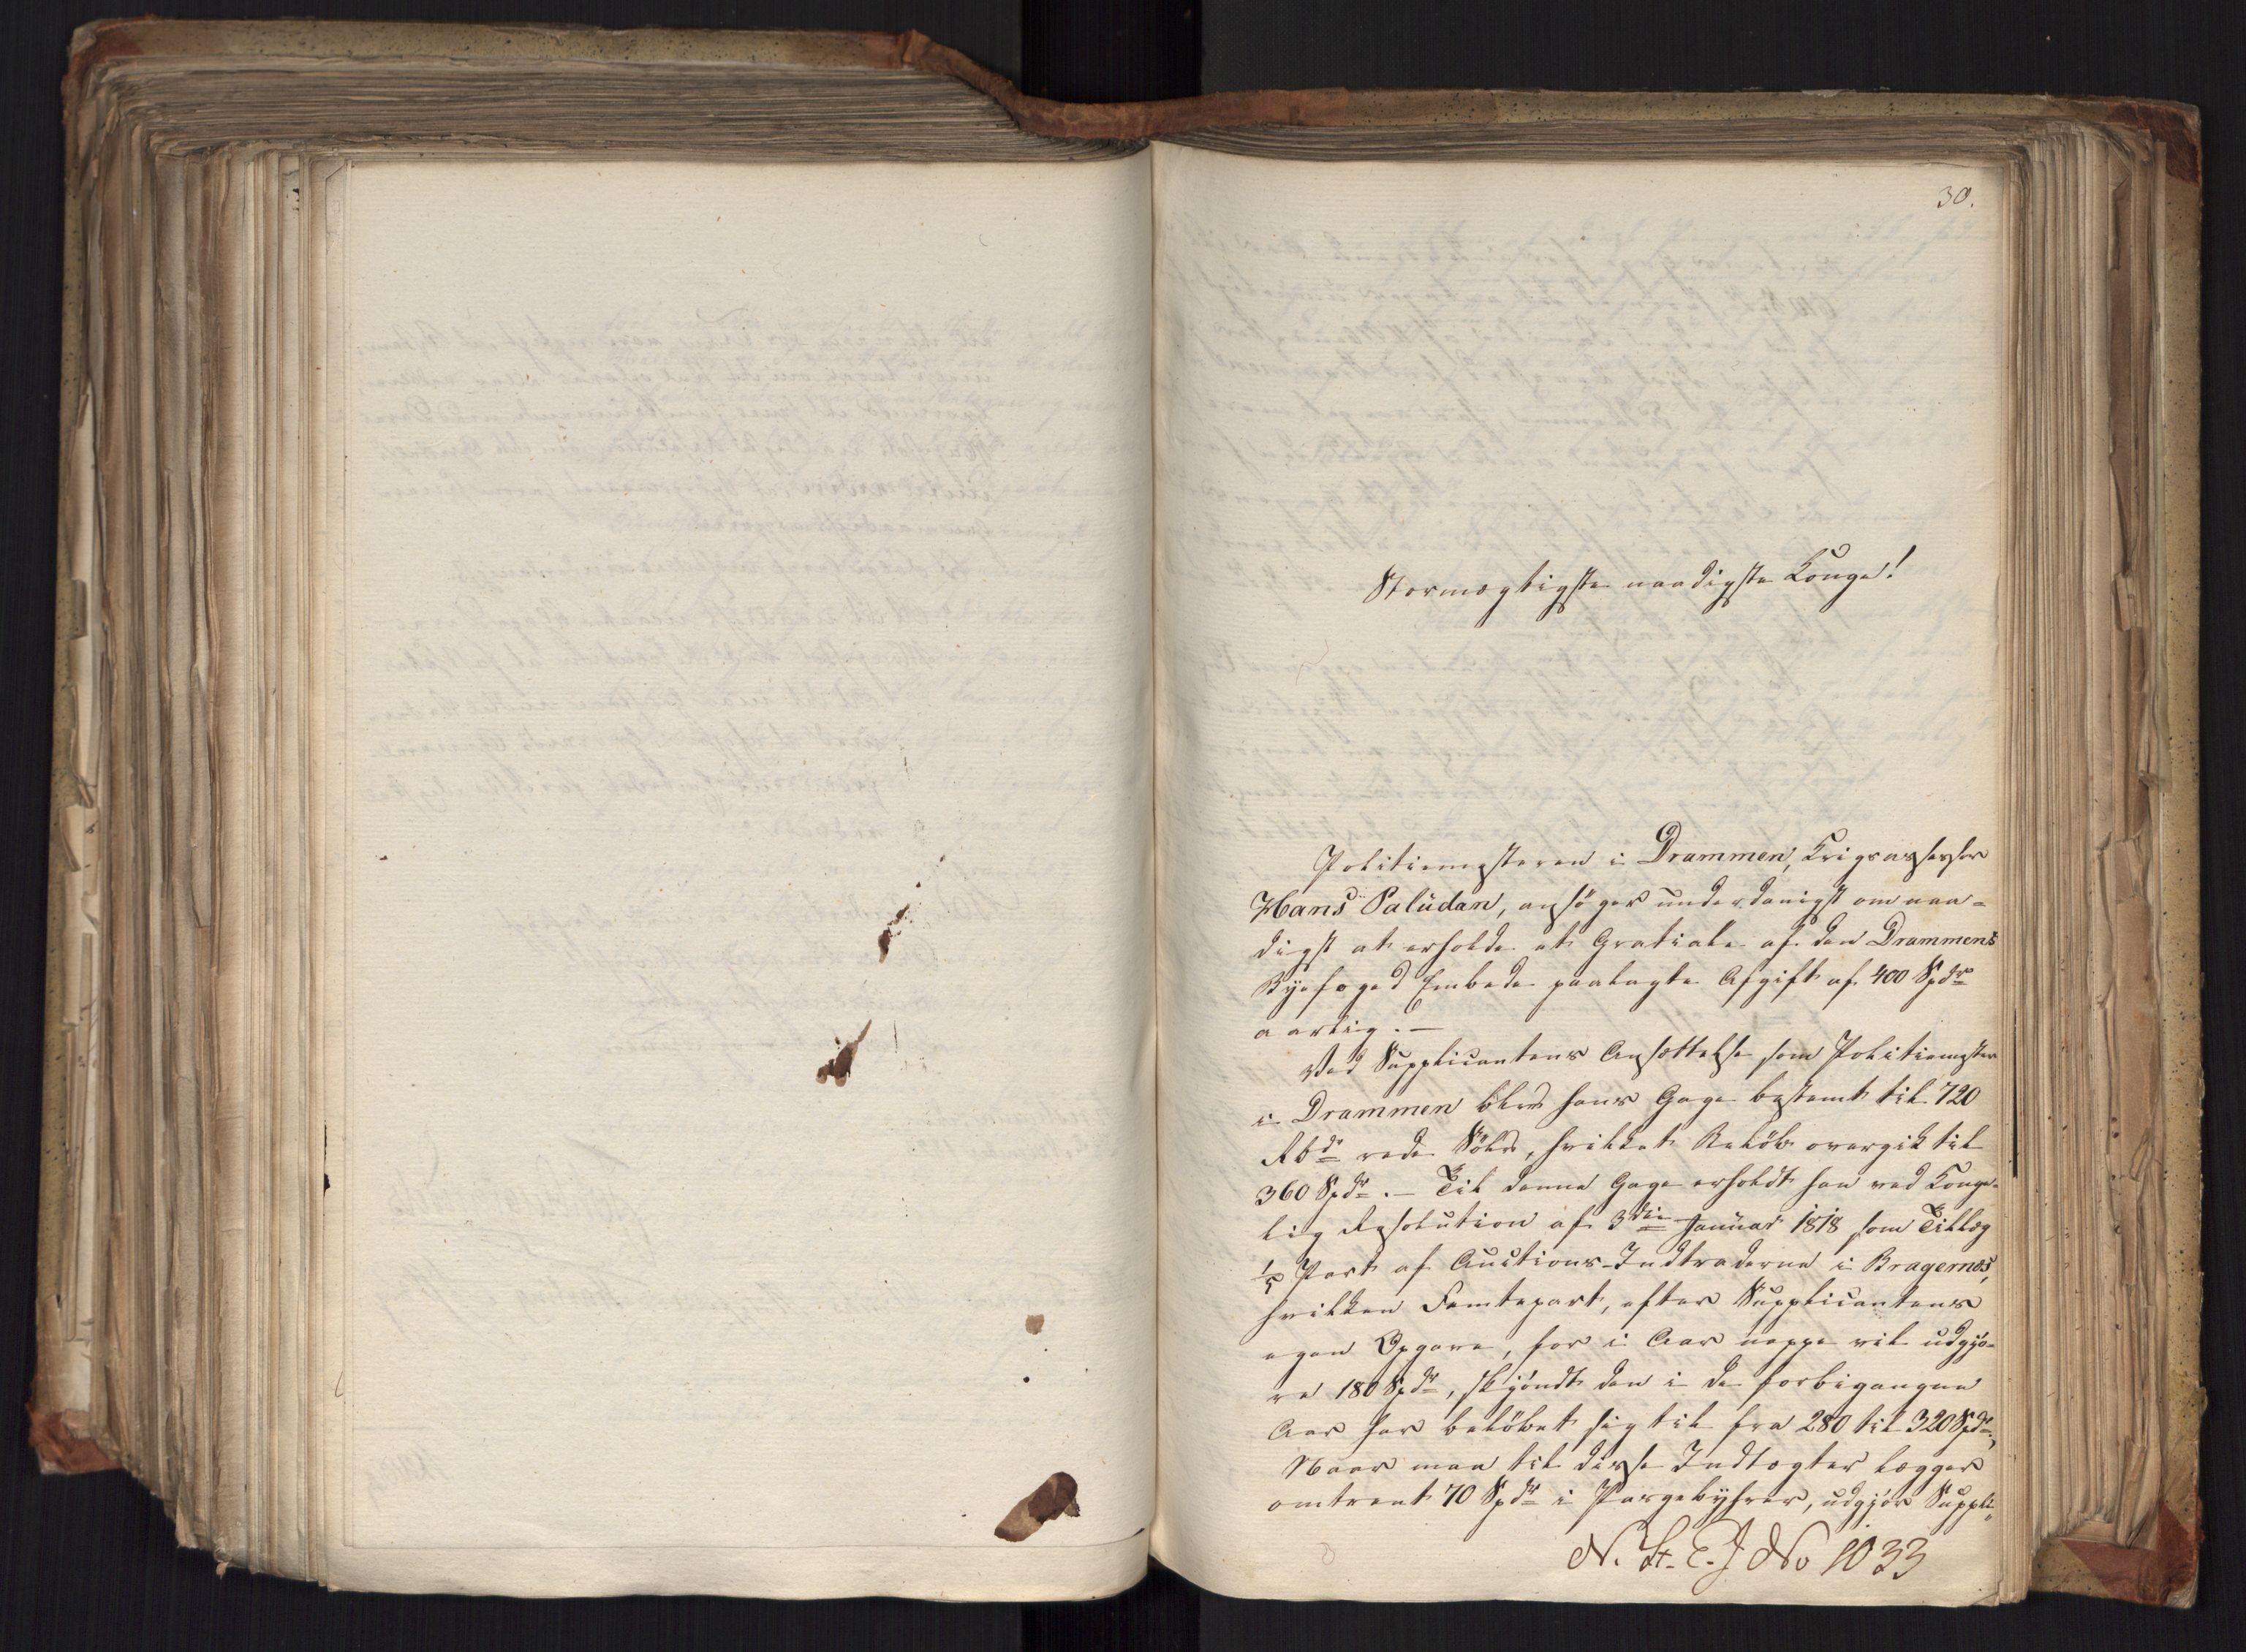 30.
Stormægtigste naadigste Konge!
Politiemesteren i Drammen, Krigsassessor
Hans Paludan, ansøger underdanigst om naa-
digst at erholde et Gratiale af den Drammens
Byefoged Embede paalagte Afgift af 400 Spdr
aarlig. —
Ved Supplicantens Ansættelse som Politiemester
i Drammen blev hans Gage bestemt til 720
Rbdr rede Sølv, hvilket Beløb overgik til
360 Spdr. — Til denne Gage erholdt han ved Konge-
lig Resolution af 3die Januar 1818 som Tillæg
1/5 Part af Auctions-Indtraderne i Bragernæs,
hvilken Femtepart, efter Supplicantens
egen Opgave, for i Aar neppe vil udgjø-
re 180 Spdr, skjøndt den i de forbigangne
Aar har beløbet sig til fra 280 til 320 Spdr.,
Naar man til disse Indtægter lægger
omtrent 70 Spdr i Pasgebyhrer, udgjør Suppli-
N. St. E. J No 1033